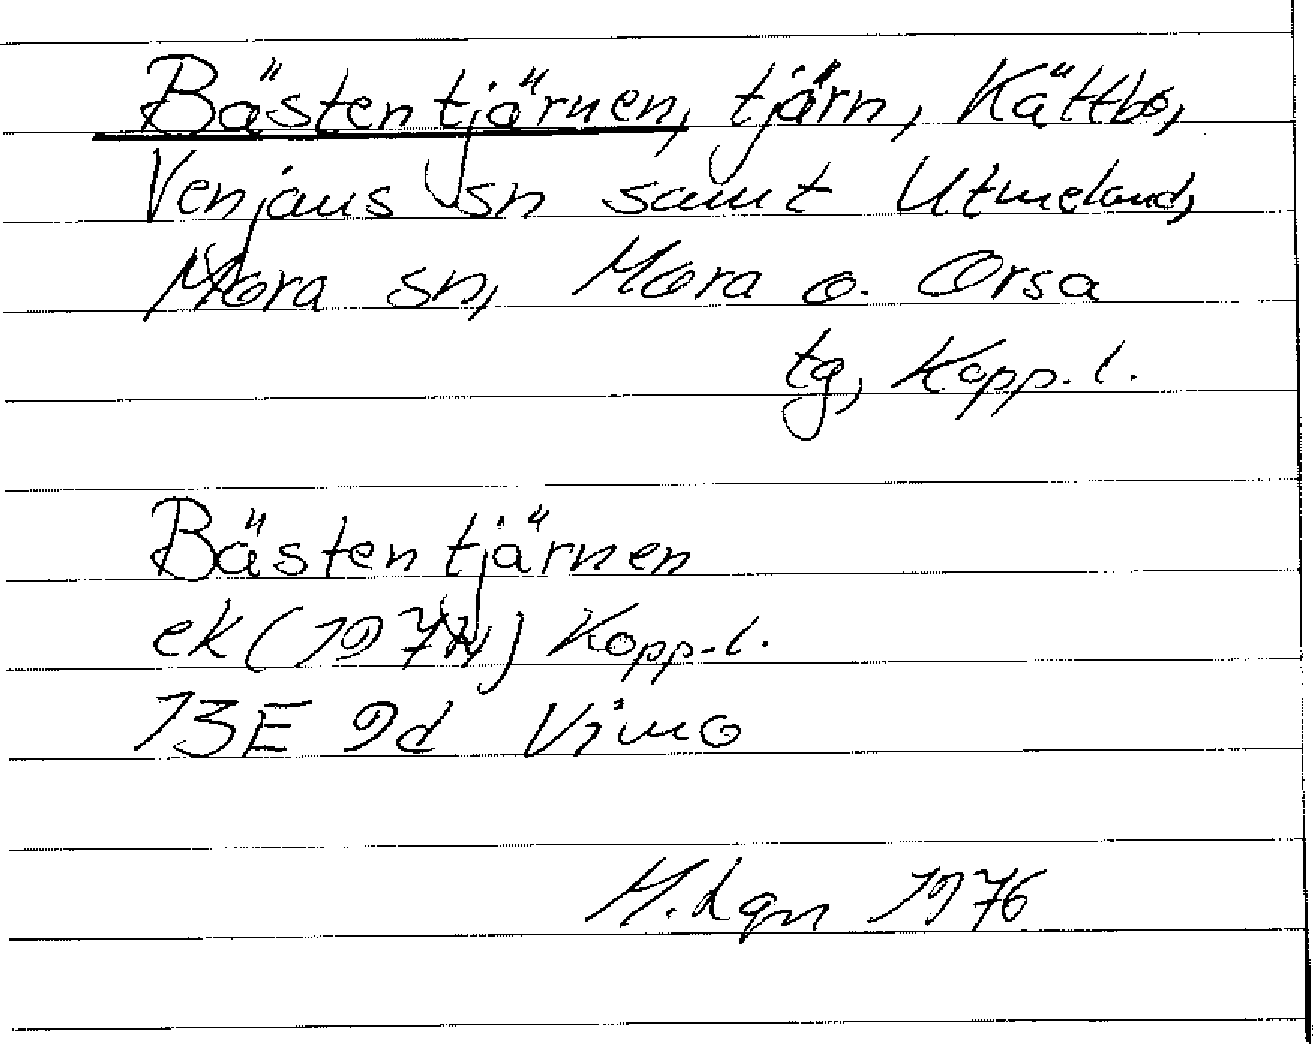 Bästentjärnen, tjärn, Kättbo,
Venjans sn samt Utmeland,
Mora sn, Mora o. Orsa
tg, Kopp. l.
Bästentjärnen
ek (1971) Kopp. l.
13E 9d Vimo
M. Lgn 1976